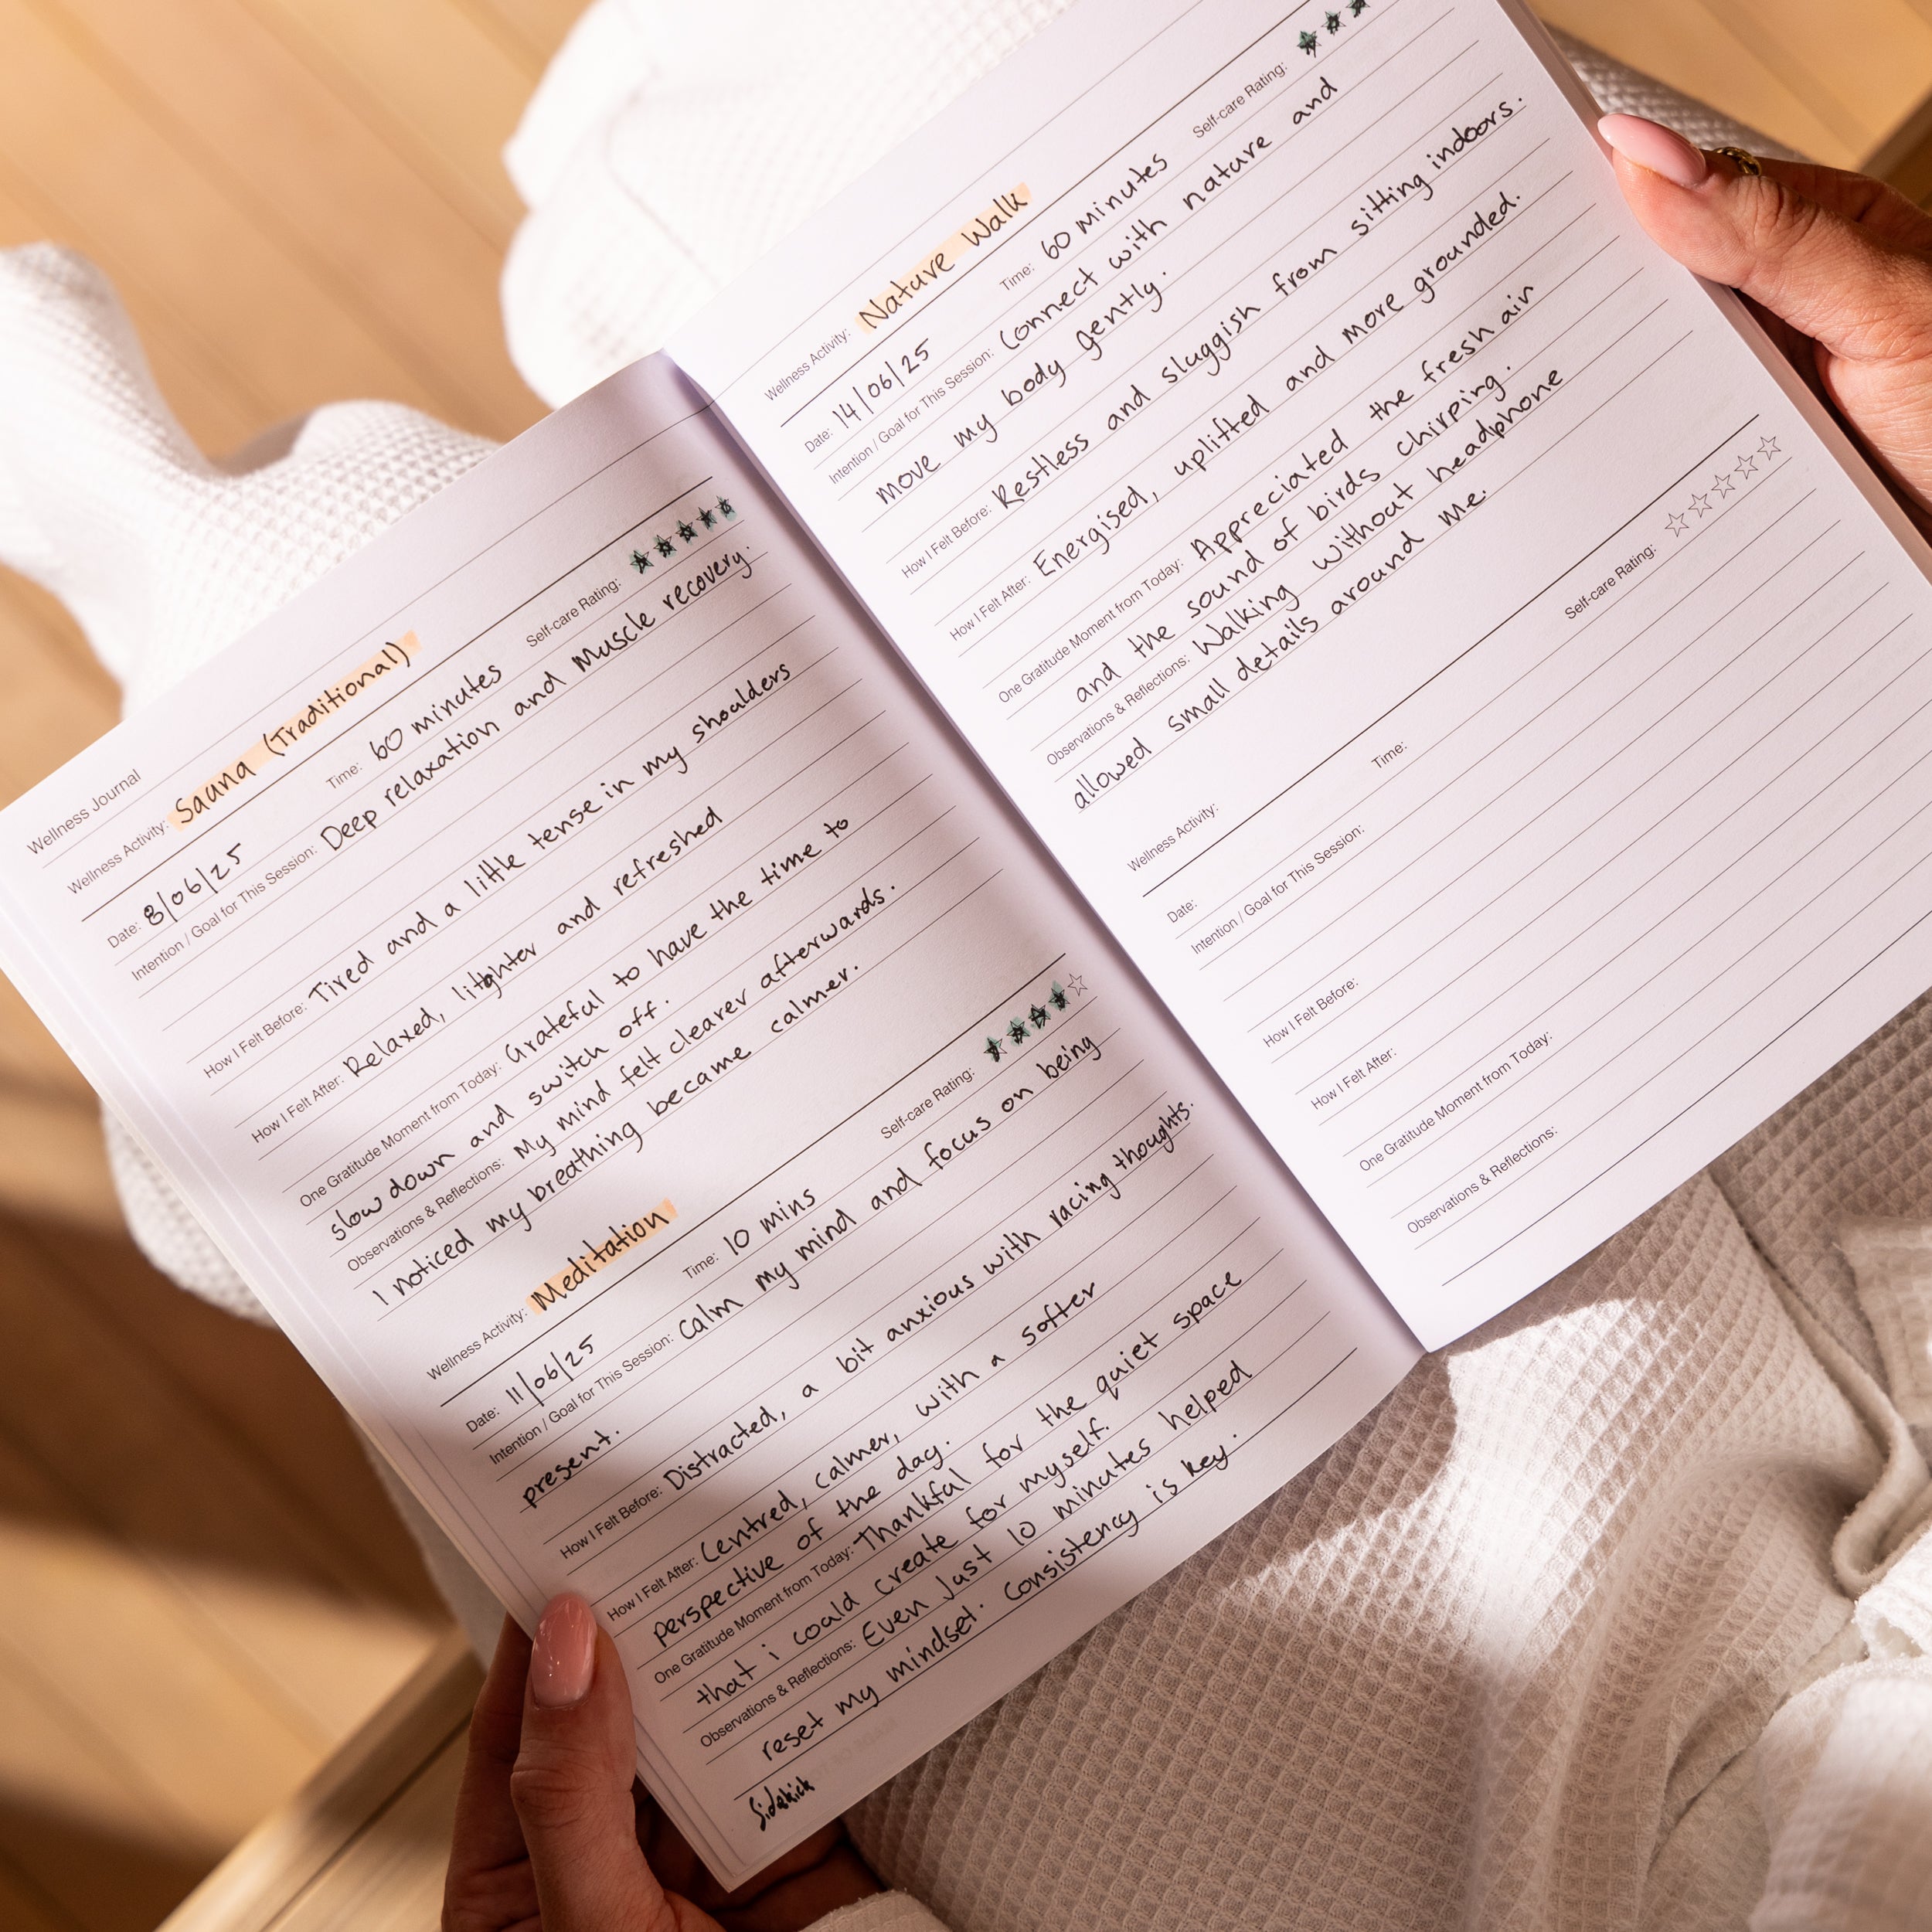 Wellness Journal
Wellness Activity: Sauna (Traditional)
Date: 8/06/25 Time: 60 minutes Self-care Rating: ★★★★★
Intention / Goal for This Session: Deep relaxation and Muscle recovery.
How I Felt Before: Tired and a little tense in my shoulders
How I Felt After: Relaxed, lighter and refreshed
One Gratitude Moment from Today: Grateful to have the time to
slow down and switch off.
Observations & Reflections: My mind felt clearer afterwards.
I noticed my breathing became calmer.
Wellness Activity: Meditation
Date: 11/06/25 Time: 10 mins Self-care Rating: ★★★★☆
Intention / Goal for This Session: Calm my mind and focus on being
present.
How I Felt Before: Distracted, a bit anxious with racing thoughts.
How I Felt After: Centred, calmer, with a softer
perspective of the day.
One Gratitude Moment from Today: Thankful for the quiet space
that i could create for myself.
Observations & Reflections: Even Just 10 minutes helped
reset my mindset. Consistency is key.
Sidekick
Wellness Activity: Nature Walk
Date: 14/06/25 Time: 60 minutes Self-care Rating: ★★★
Intention / Goal for This Session: Connect with nature and
move my body gently.
How I Felt Before: Restless and sluggish from sitting indoors.
How I Felt After: Energised, uplifted and more grounded.
One Gratitude Moment from Today: Appreciated the fresh air
and the sound of birds chirping.
Observations & Reflections: Walking without headphone
allowed small details around me.
Wellness Activity:
Date: Time: Self-care Rating: ☆☆☆☆☆
Intention / Goal for This Session:
How I Felt Before:
How I Felt After:
One Gratitude Moment from Today:
Observations & Reflections: